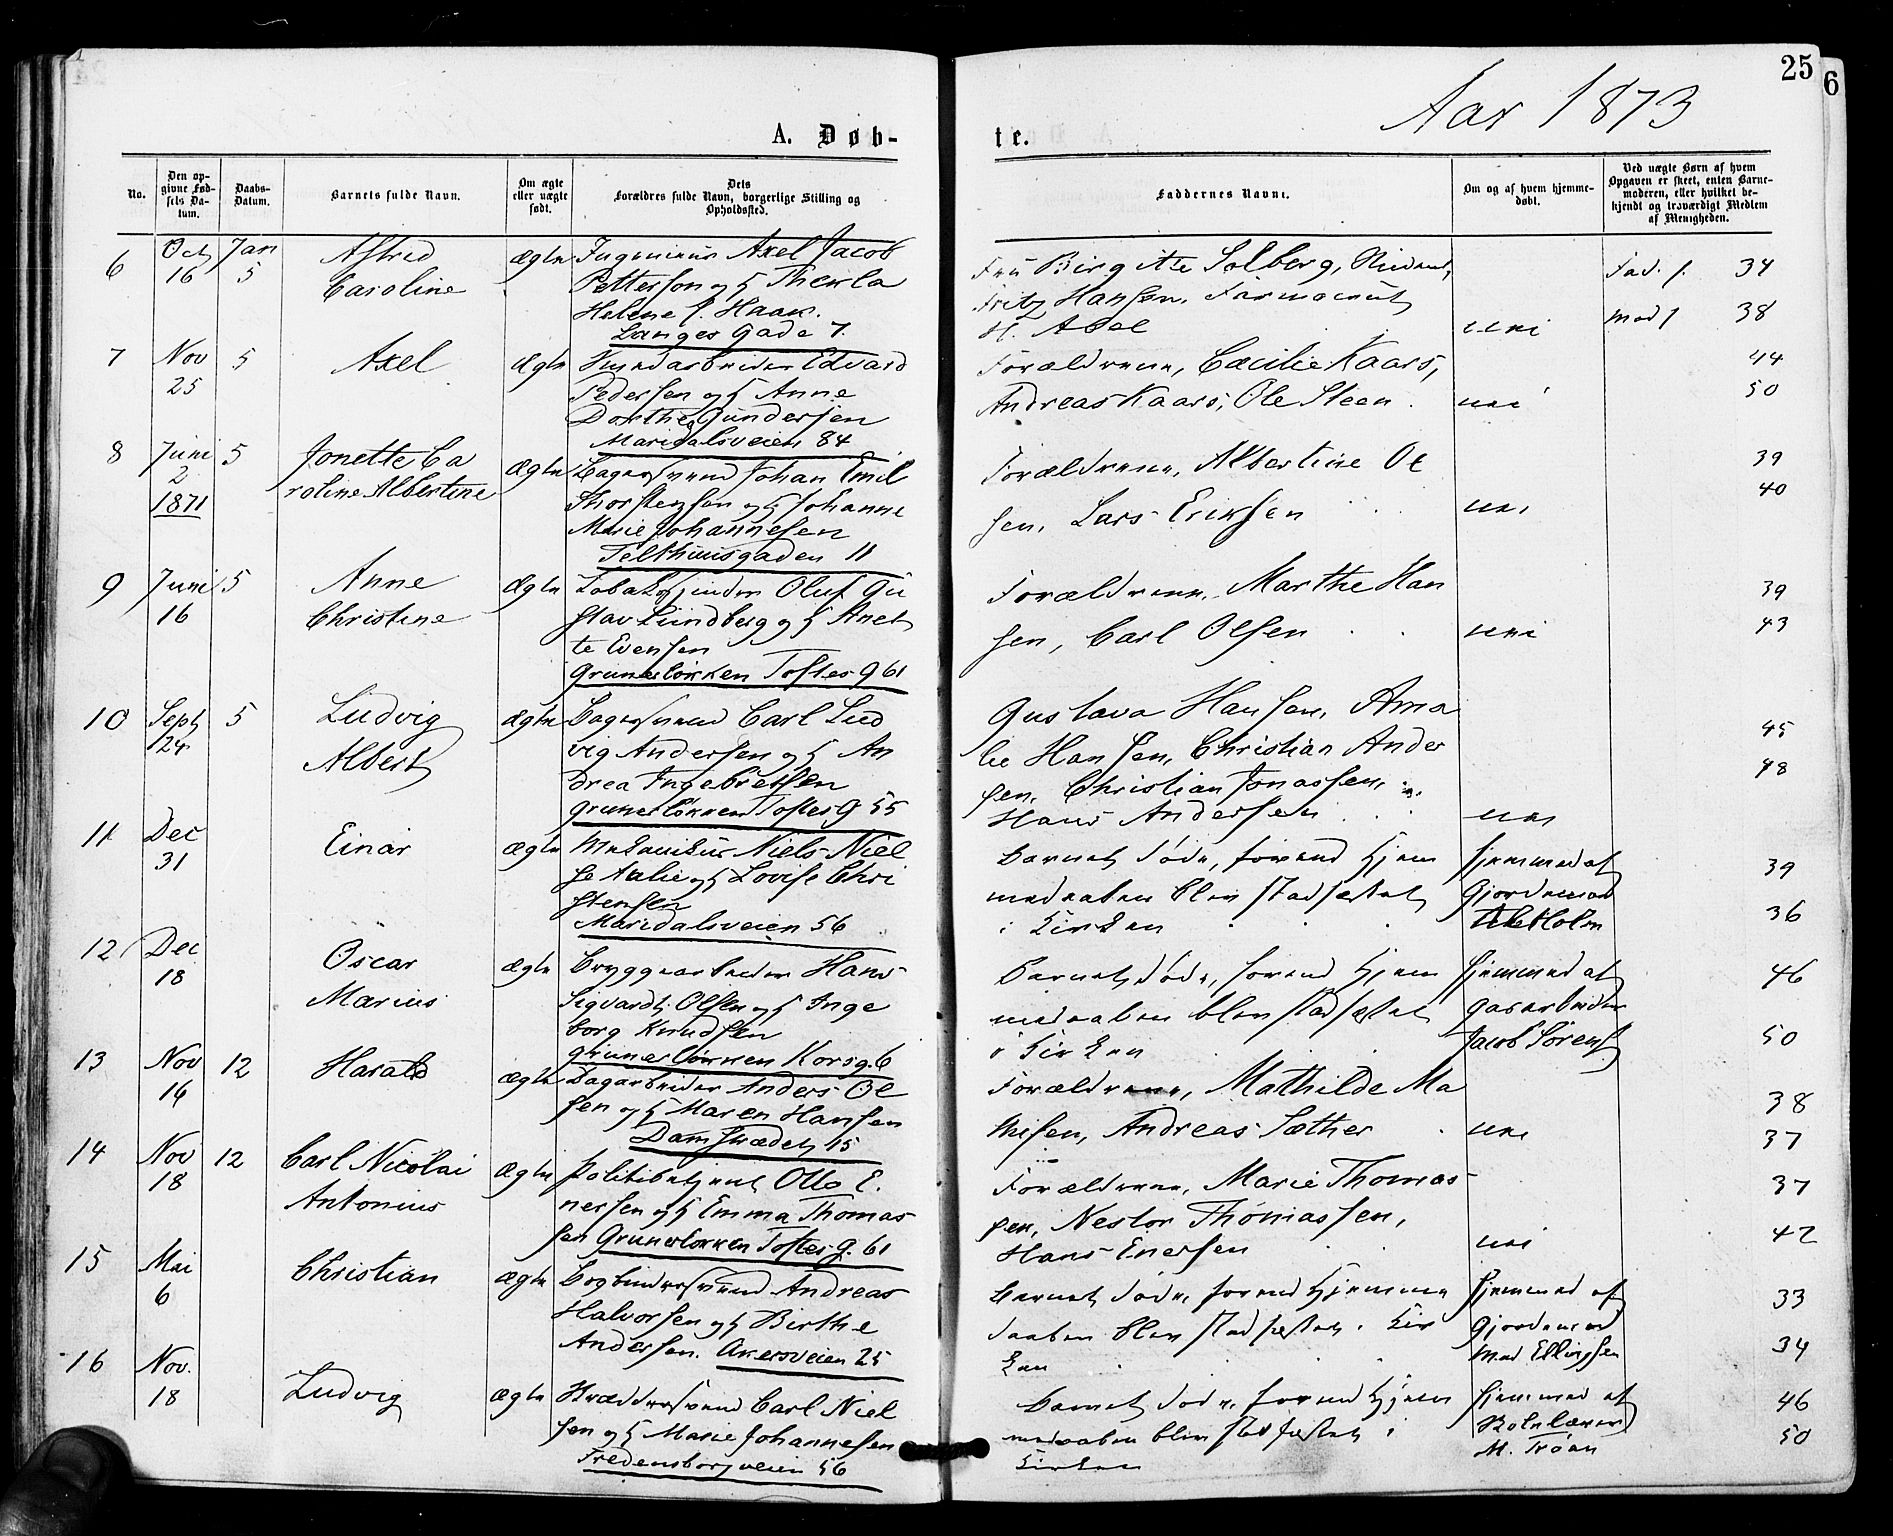 25
6
Aar 1873
A. Døb-
te.
No.
Den op-
givne Fød-
sels Da-
tum.
Daabs-
Datum.
Barnets fulde Navn.
Om ægte
eller uægte
født.
Dets
Forældres fulde Navn, borgerlige Stilling og
Opholdssted.
Faddernes Navne.
Om og af hvem hjemme-
døbt.
Ved uægte Børn af hvem
Opgaven er skeet, enten Barne-
moderen, eller hvilket be-
kjendt og troværdigt Medlem
af Menigheden.
6
Oct
16
Jan
5
Astrid
Caroline
ægte
Ingenieur Axel Jacob
Petterson og H Thekla
Helene f. Haak.
Langes Gade 7.
Fru Birgitte Solberg,
Fritz Hansen, Farmaceut
H. Abel
nei
Fad. f. 34
Mod f 38
7
Nov
25
5
Axel
Ægte
Smedarbeider Edvard
Pedersen og H Anne
Dorthe Gundersen
Maridalsveien 84
Forældrene, Cæcilie Kaars,
Andreas Kaars, Ole Steen.
nei
44
50
8
Juni
2
1871
5
Jonette Ca
roline Albertine
Ægte
Bagersvend Johan Emil
Thorstensen og H Johanne
Marie Johannesen
Telthuusgaden 11
Forældrene, Albertine Ol
sen, Lars Eriksen
nei
39
40
9
Juni
16
5
Anne
Christine
Ægte
Tobaksspinder Oluf Gu
stav Lundberg og H Anet
te Evensen
Grünerløkken Toftes G 61
Forældrene, Marthe Han
sen, Carl Olsen
nei
39
43
10
Sept
24
5
Ludvig
Albert
Ægte
Bagersvend Carl Lud
vig Andersen og H An
drea Ingebretsen
Grünerløkken Toftes G 55
Gustava Hansen, Ama
lie Hansen, Christian Ander
sen, Christian Jonassen,
Hans Andersen
nei
45
48
11
Dec
31
Einar
ægte
Mekanikus Niels Niel
se Aalie og H Lovise Chri
stensen
Maridalsveien 56
Barnet døde, førend Hjem
medaaben blev stadfæstet
i Kirken
hjemmed af
Gjordemod
Holm
39
36
12
Dec
18
Oscar
Marius
ægte
Bryggearbeider Hans
Sigvardt Olsen og H Inge
borg Knudsen
Grünerløkken Korsg. 6
Barnet døde, førend Hjem
medaaben blev stadfæstet
i Kirken
hjemmed af
Gasarbeider
Jacob Sørens
46
50
13
Nov
16
12
Harald
ægte
Dagarbeider Anders Ol
sen og H Maren Hansen
Damstrædet 15
Forældrene, Mathilde Ma
thisen, Andreas Sæther
nei
38
37
14
Nov
18
12
Carl Nicolai
Antonius
Ægte
Politibetjent Otto E.
nersen og H Emma Thomas
sen Grünerløkken Toftes g. 61
Forældrene, Marie Thomas
sen, Nestor Thomassen,
Hans Enersen
nei
37
42
15
Mai
6
Christian
ægte
Bogbindersvend Andreas
Halvorsen og H Birthe
Andersen. Akersveien 25
Barnet døde, førend Hjemme
daaben blev stadfæstet i Kir
ken
hjemmed af
Gjordemod
Mad Ellingsen
33
34
16
Nov.
18
Ludvig
ægte
Skræddersvend Carl Niel
sen og H Marie Johannesen
Fredensborgveien 56
Barnet døde, førend Hjem
medaaben blev stadfæstet i
Kirken
hjemmed af
Skolelærer
M. Trøan
46
50